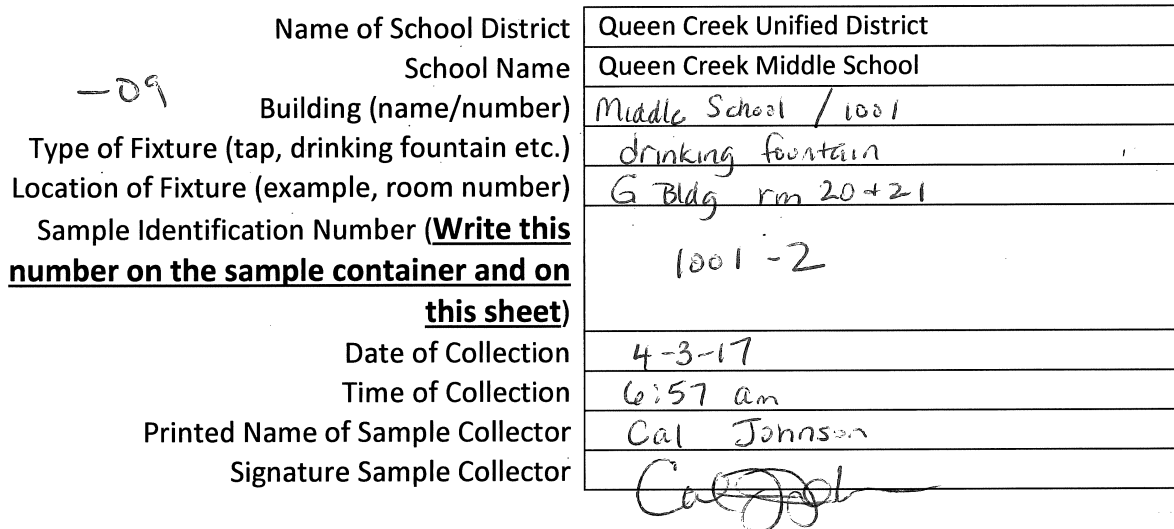 Name of School District Queen Creek Unified District
School Name Queen Creek Middle School
-09
Building (name/number) Middle School / 1001
Type of Fixture (tap, drinking fountain etc.) drinking fountain
Location of Fixture (example, room number) G Bldg rm 20+21
Sample Identification Number (Write this
number on the sample container and on
this sheet) 1001-2
Date of Collection 4-3-17
Time of Collection 6:57 am
Printed Name of Sample Collector Cal Johnson
Signature Sample Collector